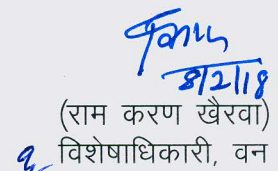 8/2/18
(राम करण खैरवा)
विशेषाधिकारी, वन